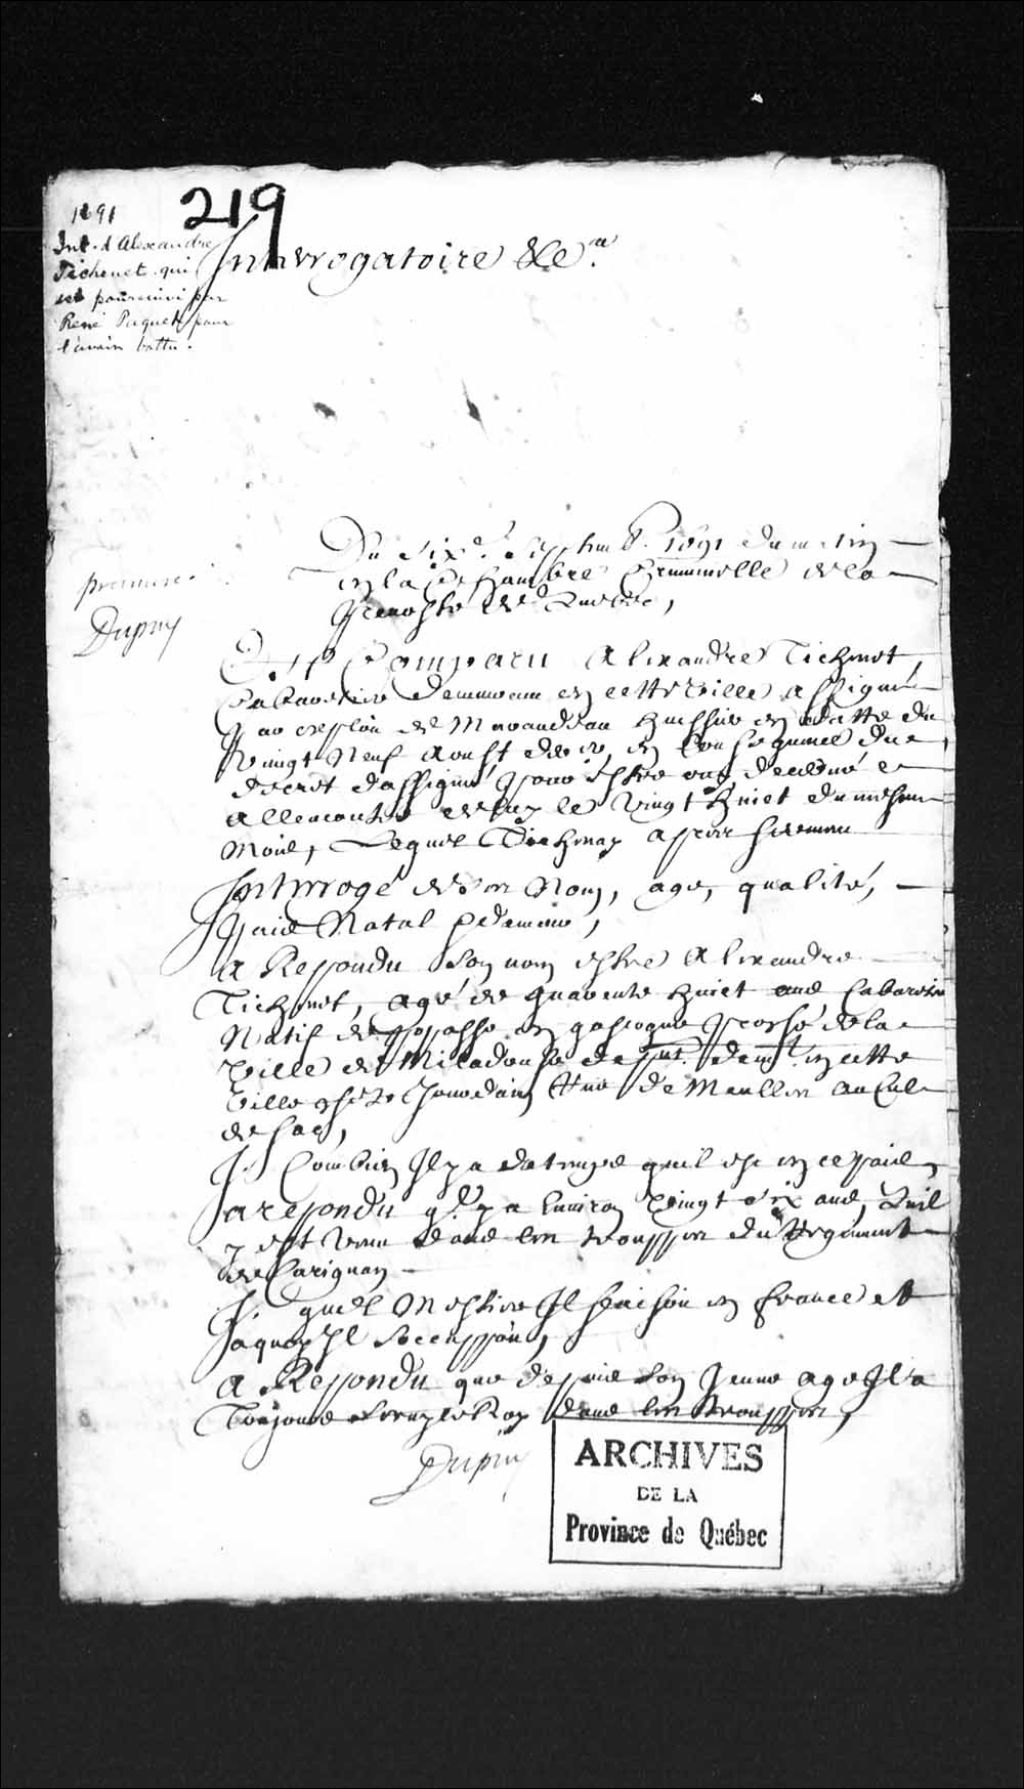 1691
219
Int. d'Alexandre
Tichenet qui
est poursuivi par
René Paquet pour
l'avoir battu.
Interrogatoire &c.a
Du six.e Septemb. 1691 du matin
en la chambre Criminelle de la
prevosté de Quebec,
premiere
Dupuy
Est Comparu Alexandre Tichenet,
Cabaretier demeurant en cette ville assigné
par exploit de Marandeau huissier en datte du
vingt Neuf aoust der.er en consequence du
decret d'assigné pour estre ouy decerné a
allencontre de luy le vingt huict du mesme
Mois, Lequel Tichenay apres serment
Interrogé de son Nom, age, qualité,
païs Natal & demeure,
A Respondu son nom estre Alexandre
Tichenet, agé de quarente huict ans Cabaretier
Natif de en gascogne proche de la
ville de Miladouse de p.nt dem.t en cette
ville Rue De Meullen au Cul
de sac,
I. Combien Il y a de temps quil est en ce païs,
A respondu q.l y a Environ vingt six ans, quil
y est venu dans les trouppes du Regiment
de Carignan
I. quel Mestier Il faisoit en france et
a quoy Il soccuppoit,
A Respondu que depuis son Jeune age Il a
Toujours servy le Roy dans les trouppes,
Dupuy
ARCHIVES
DE LA
Province de Québec